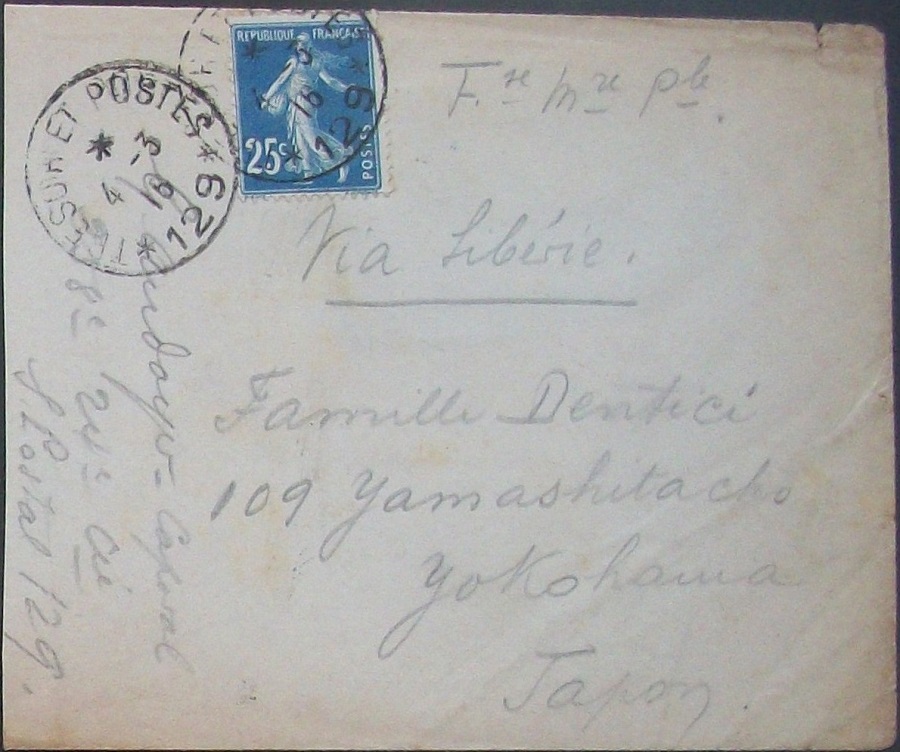 TRESOR ET POSTES
* 4 -3 16 *
* 129 *
REPUBLIQUE FRANÇAISE
25c
POSTES
* 4 3 16 *
* 129
F.se Mre Ple
Via Sibérie.
Famille Dentici
109 Yamashitacho
Yokohama
Japon
Caporal
8e 24e Cie
S. Postal 129.